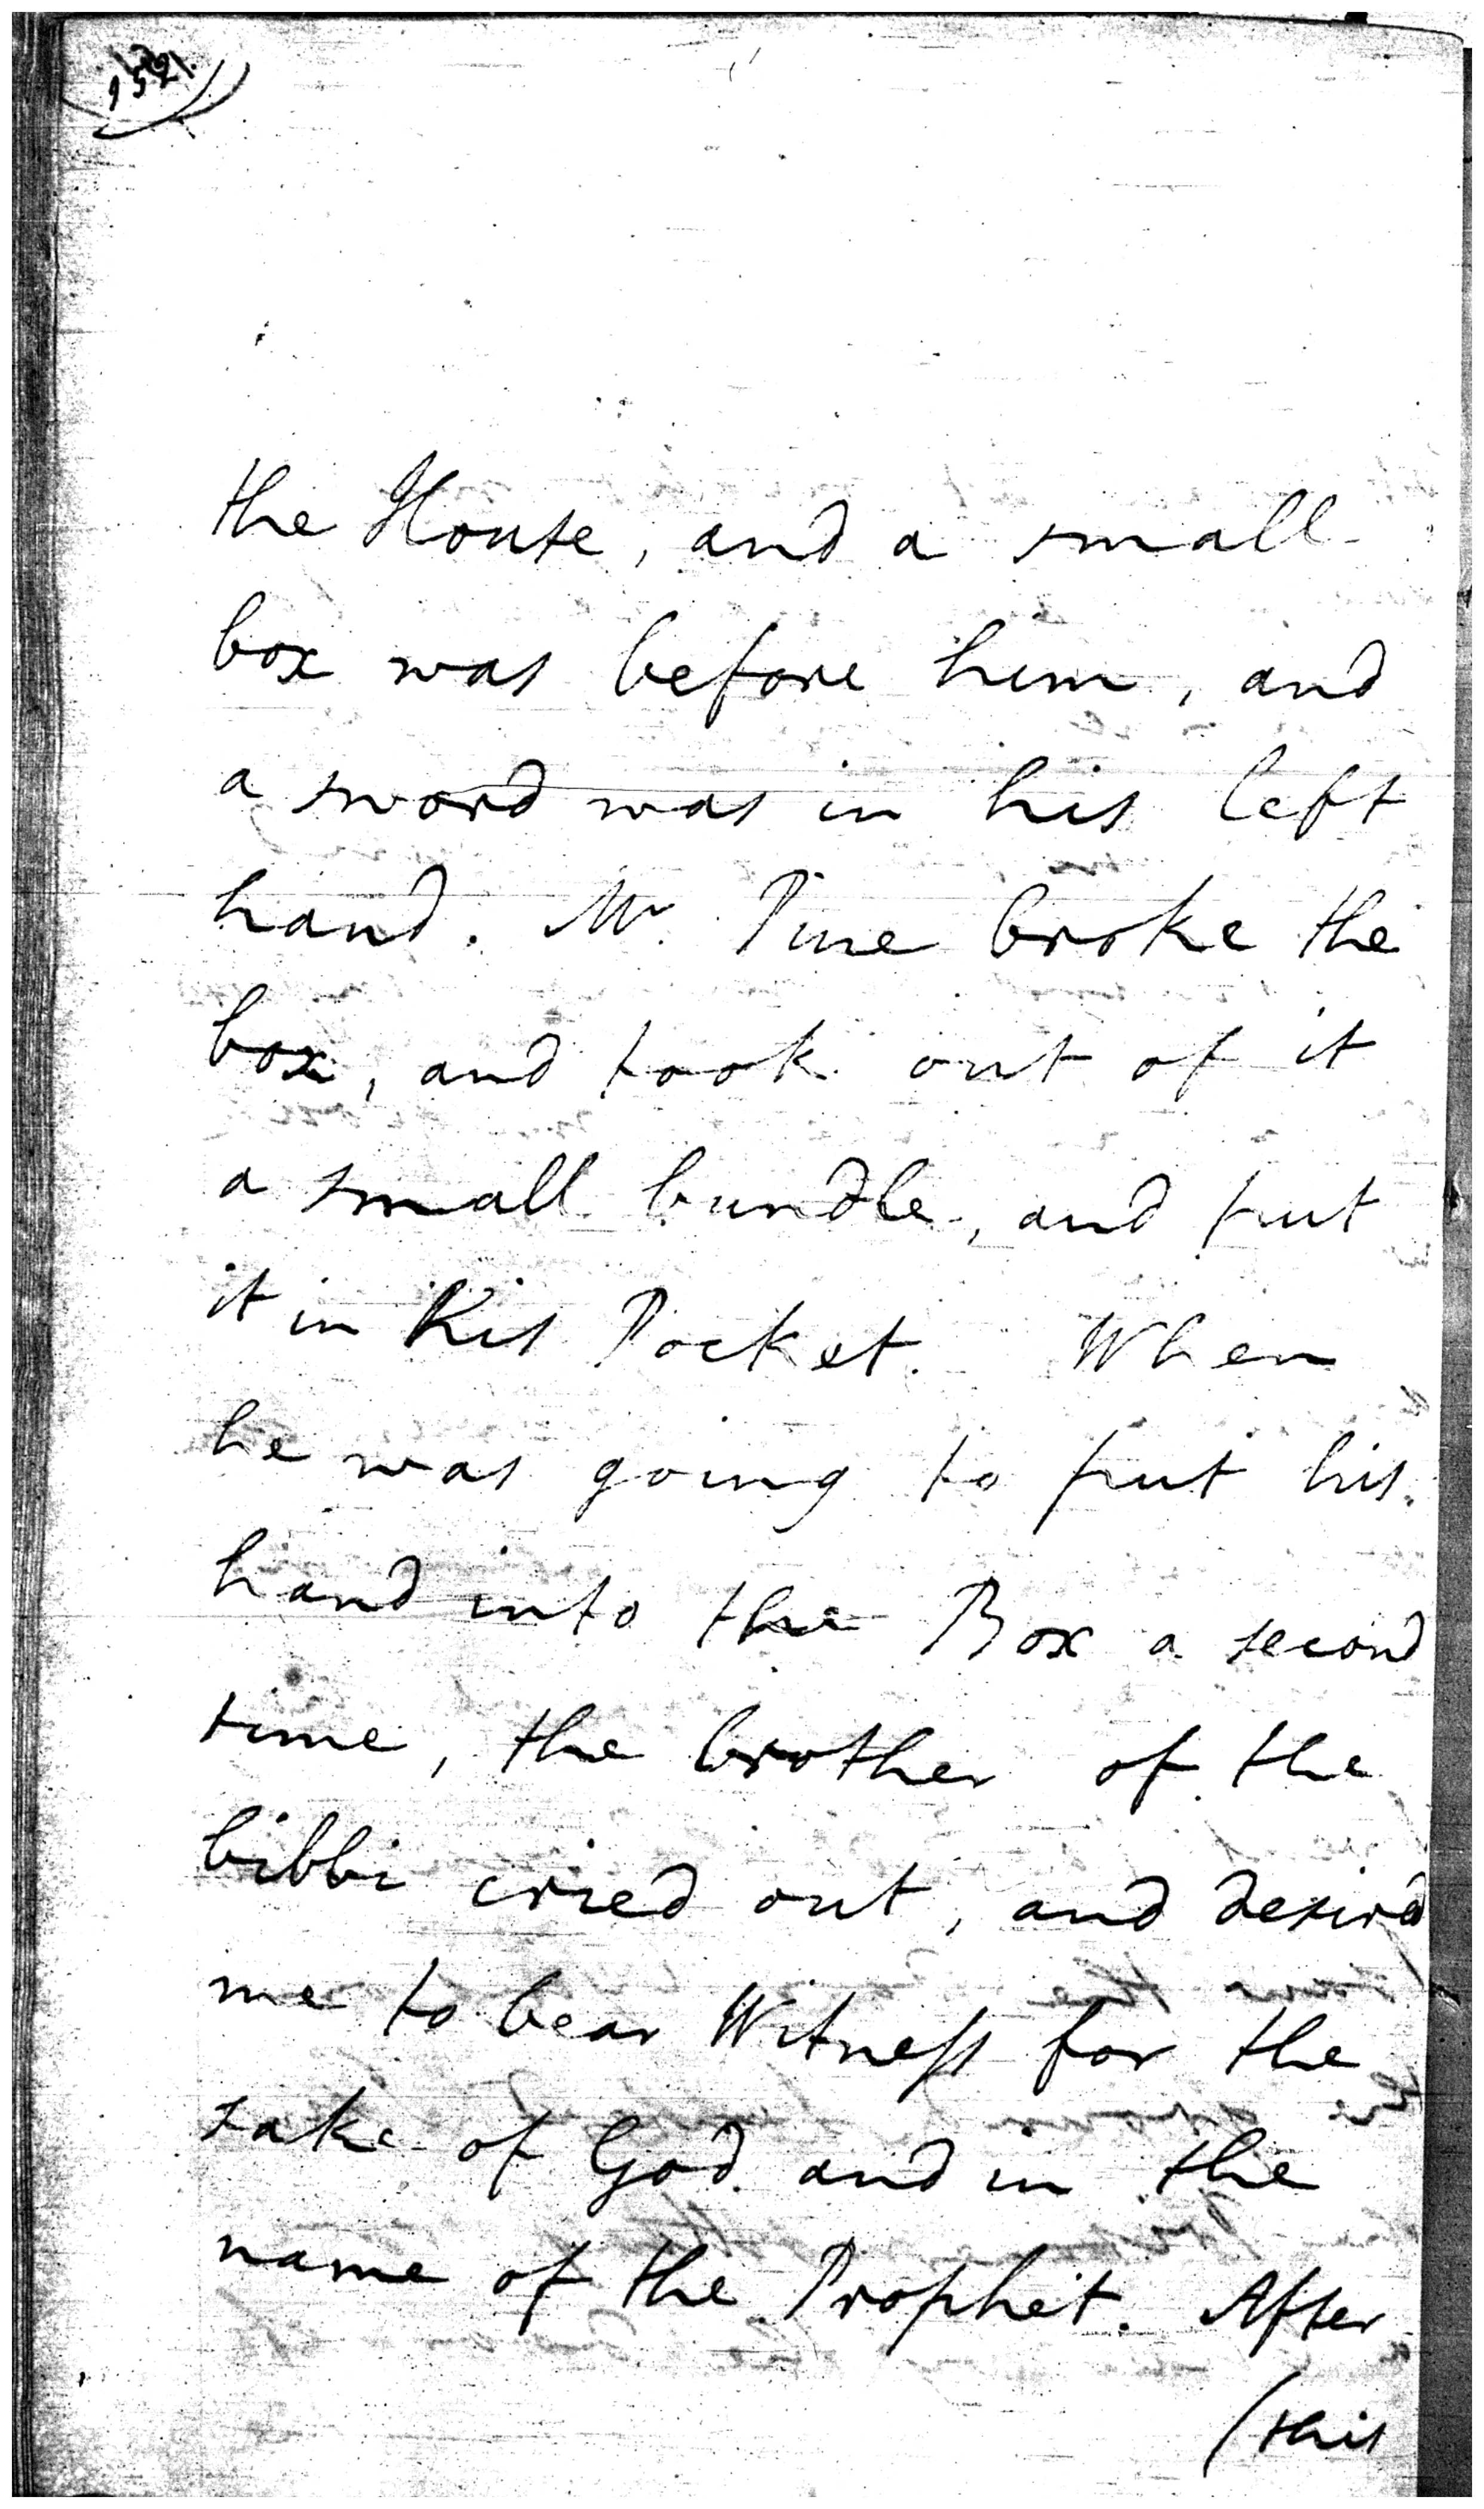 the House, and a small
box was before him, and
a sword was in his left
hand. Mr. Pine broke the
box, and took out of it
a small bundle, and put
it in his Pocket. When
he was going to put his
hand into the Box a second
time, the brother of the
bibbi cried out, and desird
me to bear Witness for the
sake of God and in the
name of the Prophet. After
(this